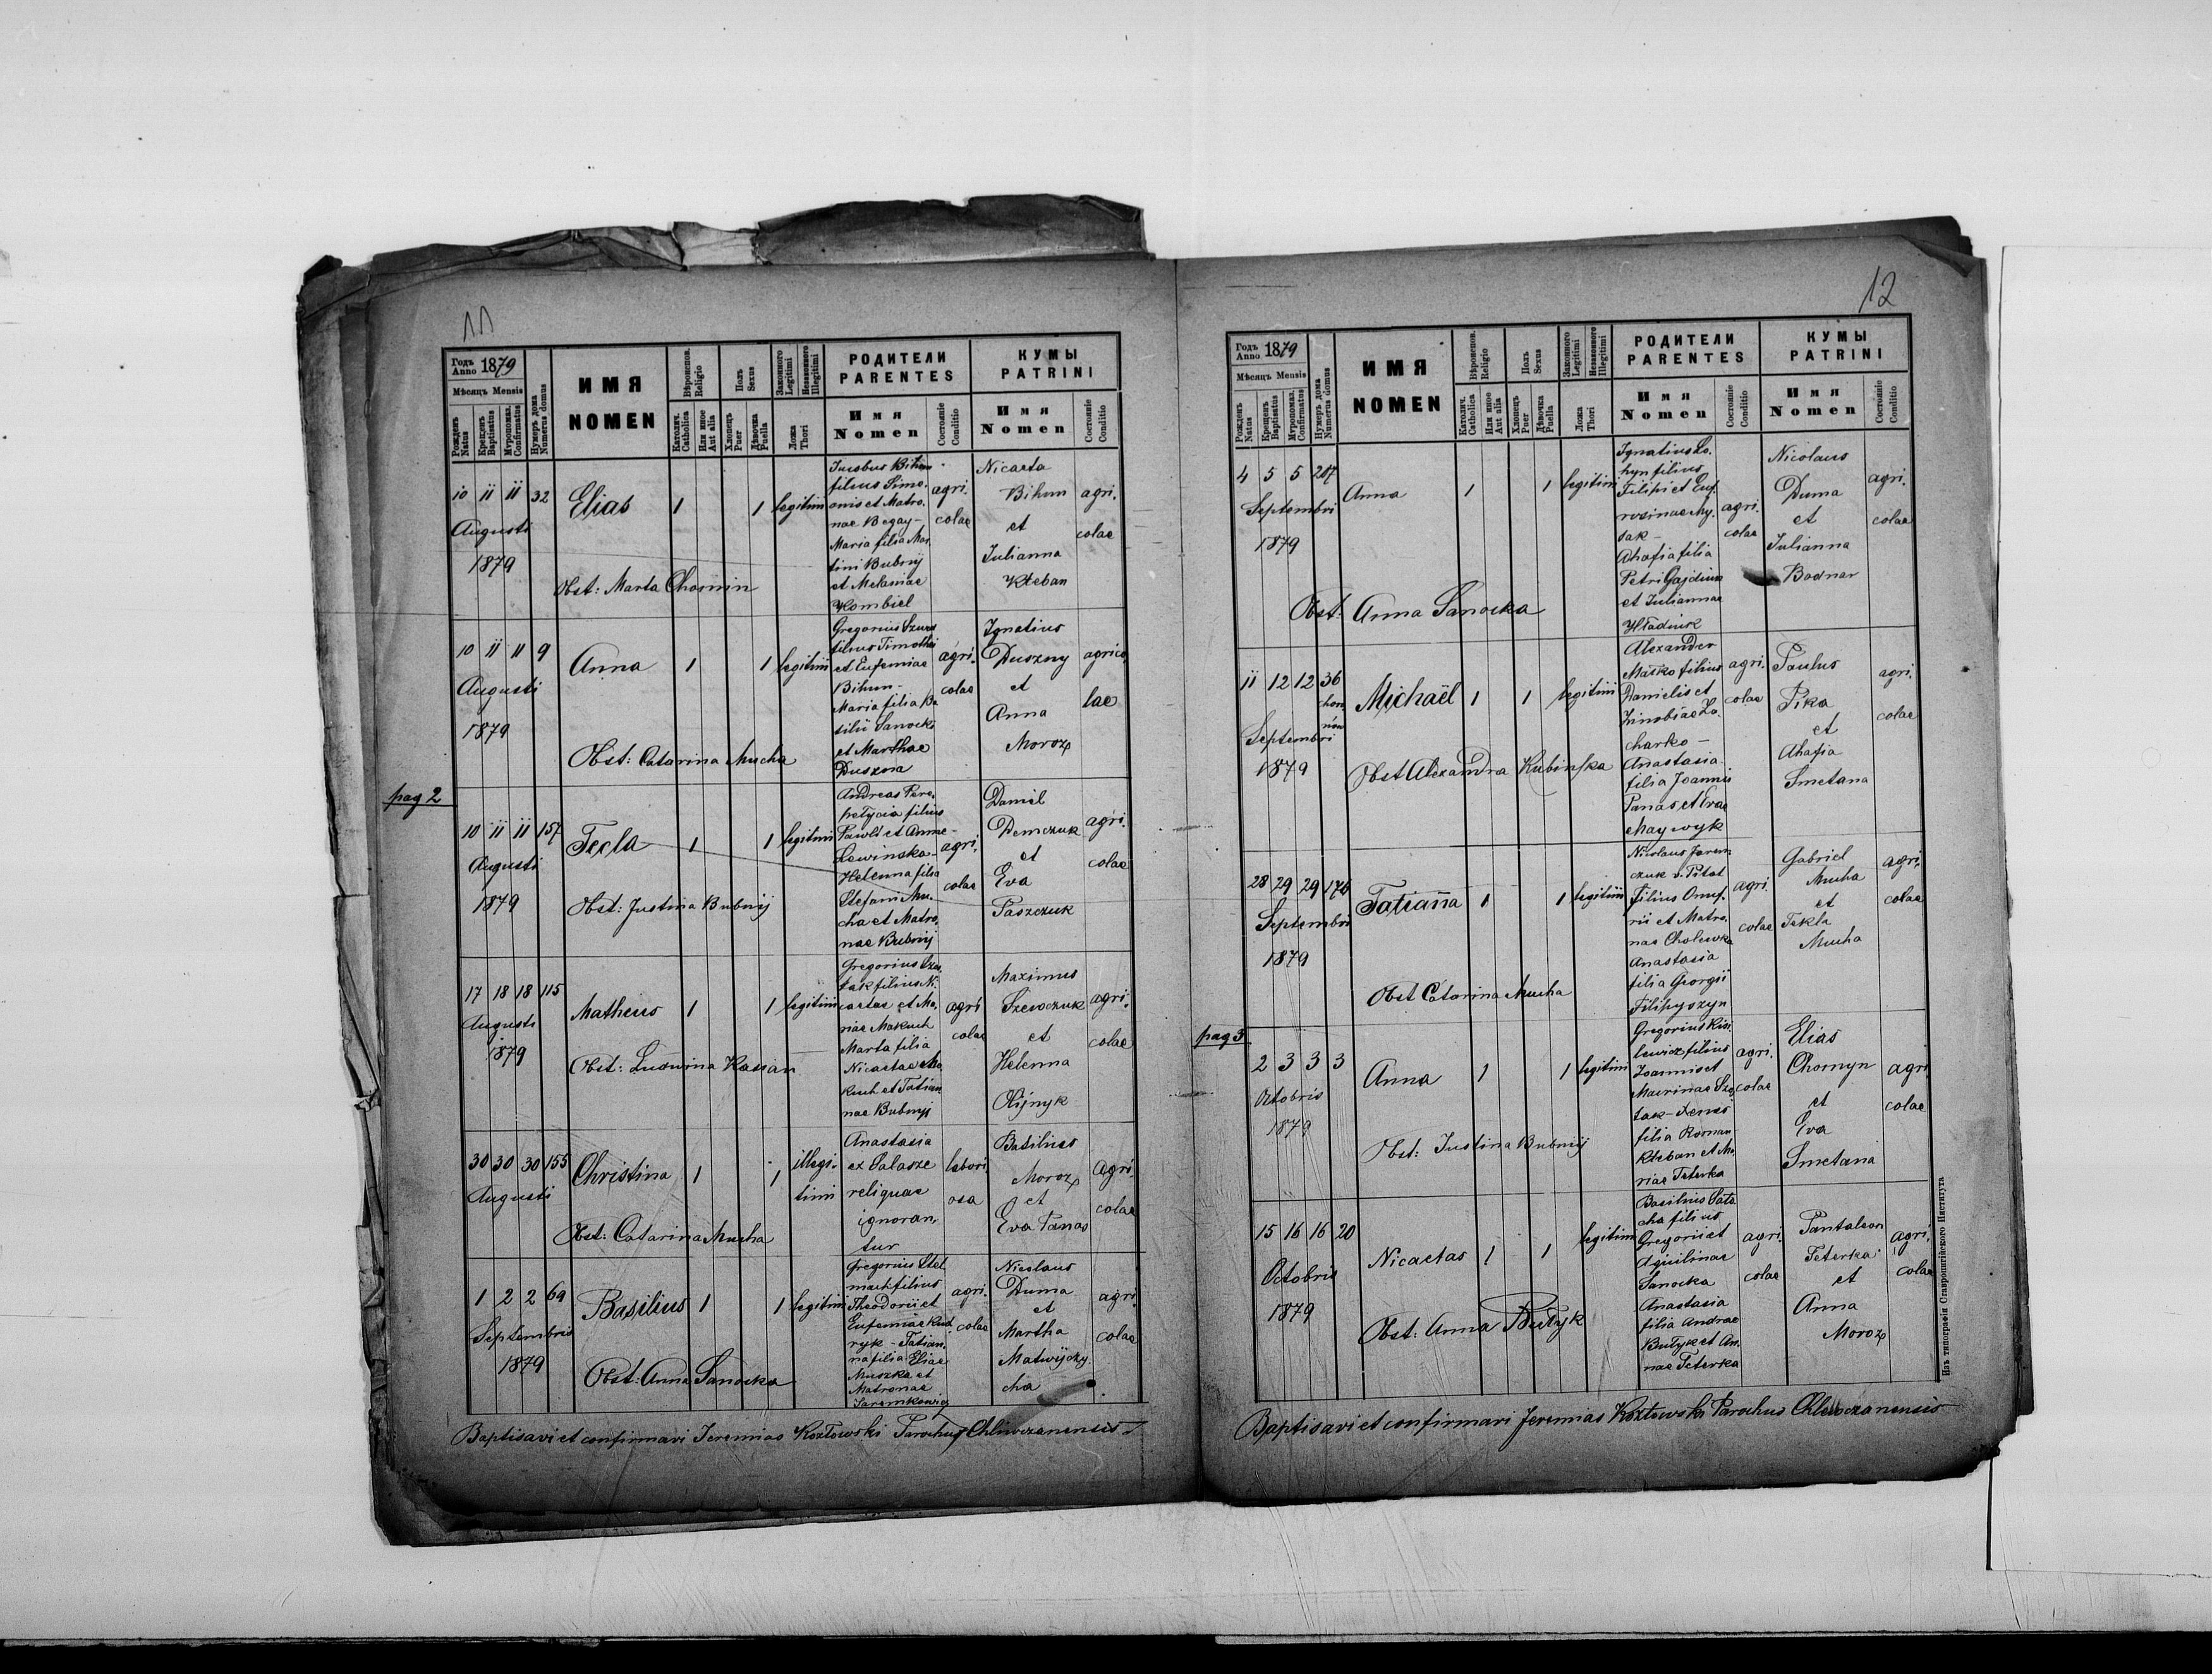 11
Годъ Anno 1879
Мѣсяцъ Mensis
Рожденъ Natus
Крещенъ Baptisatus
Мѵропомаз. Confirmatus
Нумеръ дома Numerus domus
ИМЯ
NOMEN
Вѣроиспов. Religio
Католич. Catholica
Или иное Aut alia
Полъ Sexus
Хлопецъ Puer
Дѣвочка Puella
Законного Legitimi
Незаконного Illegitimi
Ложа Thori
РОДИТЕЛИ
PARENTES
Имя
Nomen
Состояніе Conditio
КУМЫ
PATRINI
Имя
Nomen
Состояніе Conditio
10 11 11 32
Augusti
1879
Elias 1 1 legitimi
Obst: Marta Chomin
Jacobus Bihun
filius Simo-
onis et Matro-
nae Begay-
Maria filia Mar-
tini Bubnij
et Melaniae
Hombiel
agri-
colae
Nicaeta
Bihun
et
Julianna
Kteban
agri-
colae
10 11 11 9
Augusti
1879
Anna 1 1 legitimi
Obst: Catarina Mucha
Gregorius
filius Timothei
et Eufemiae
Bihun-
Maria filia Ba
silii Sanocki
et Marthae
Duszna
agri-
colae
Ignatius
Duszny
et
Anna
Moroz
agrico-
lae
pag 2
10 11 11 157
Augusti
1879
Tecla 1 1 legitimi
Obst: Justina Bubnij
Andreas Pere-
pełycia filius
Pawło et Annae-
Lewinska-
Helenna filia
Stefani Mu-
cha et Matro-
nae Bubnij
agri-
colae
Daniel
Demczuk
et
Eva
Paszczuk
agri-
colae
17 18 18 115
Augusti
1879
Matheus 1 1 legitimi
Obst: Ludwina Kassian
Gregorius Szos-
tak filius Ni-
caetae et Ma-
riae Makuch
Marta filia
Nicaetae Ma-
kuch et Tatian-
nae Bubnij
agri
colae
Maximus
Szewczuk
et
Helenna
Olijnyk
agri-
colae
30 30 30 155
Augusti
Christina 1 1 illegi-
timi
Obst: Catarina Mucha
Anastasia
ex Salasze
reliquae
ignoran-
tur
labori
osa
Basilius
Moroz
et
Eva Panas
agri-
colae
1 2 2 69
Septembris
1879
Basilius 1 1 legitimi
Obst: Anna Sanocka
Gregorius Stel-
mach filius
Theodorii et
Eufemiae Kud-
ryk - Tatian-
na filia Eliae
Muszka et
Matronae
Jaremkowicz
agri-
colae
Nicolaus
Duma
et
Martha
Matwijczy-
cha
agri-
colae
Baptisavi et confirmavi Jeremias Kozłowski Parochus Chliwczanensis
12
Годъ Anno 1879
Мѣсяцъ Mensis
Рожденъ Natus
Крещенъ Baptisatus
Мѵропомаз. Confirmatus
Нумеръ дома Numerus domus
ИМЯ
NOMEN
Вѣроиспов. Religio
Католич. Catholica
Или иное Aut alia
Полъ Sexus
Хлопецъ Puer
Дѣвочка Puella
Законного Legitimi
Незаконного Illegitimi
Ложа Thori
РОДИТЕЛИ
PARENTES
Имя
Nomen
Состояніе Conditio
КУМЫ
PATRINI
Имя
Nomen
Состояніе Conditio
4 5 5 207
Septembri
1879
Anna 1 1 legitimi
Obst: Anna Sanocka
Ignatius Lo-
hyn filius
Filipi et Euf-
rosinae Hy-
sak-
Ahafia filia
Petri Gajdiuk
et Juliannae
Hładiuk
agri-
colae
Nicolaus
Duma
et
Julianna
Bodnar
agri-
colae
11 12 12 36
Septembri
1879
Michaël 1 1 legitimi
Obst Alexandra Kubinska
Alexander
Masko filius
Danielis et
Zinobiae Za-
charko -
Anastasia
filia Joannis
Panas et Evae
Maywyk
agri-
colae
Paulus
Pika
et
Ahafia
Smetana
agri-
colae
28 29 29 176
Septembri
1879
Tatianna 1 1 legitimi
Obst Catarina Mucha
Nicolaus Jarem-
czuk
filius Onuf-
rii et Matro-
nae Cholewka
Anastasia
filia Georgii
Filipyszyn
agri-
colae
Gabriel
Mucha
et
Tekla
Mucha
agri-
colae
pag 3
2 3 3 3
Octobris
1879
Anna 1 1 legitimi
Obst: Justina Bubnij
Gregorius Kisi-
lewicz filius
Joannis et
Maxinae Szos-
tak - Xenia
filia Roman
Kteban et Ma-
riae Teterka
agri-
colae
Elias
Chomyn
et
Eva
Smetana
agri
colae
15 16 16 20
Octobris
1879
Nicaetas 1 1 legitimi
Obst: Anna Butyk
Basilius Sata
cha filius
Gregorii et
Aquilinae
Sanocka
Anastasia
filia Andrae
Butyk et An-
nae Teterka
agri-
colae
Pantaleon
Teterka
et
Anna
Moroz
agri-
colae
Baptisavi et confirmavi Jeremias Kozłowski Parochus Chliwczanensis
Изъ типографіи Ставропигійского Института